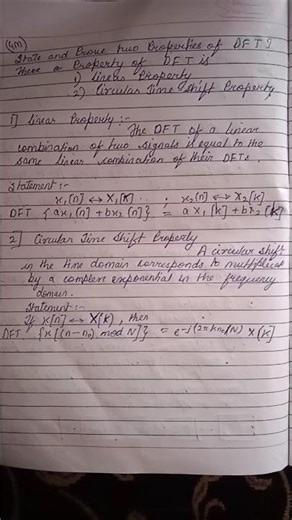 (4M)
State and Prove two Properties of DFT?
There a Property of DFT is
1) Linear Property
2) Circular Time Shift Property
1] Linear Property :-
The DFT of a linear
combination of two signals is equal to the
same linear combination of their DFTs.
Statement :-
x₁[n] ↔ X₁[k] ; x₂[n] ↔ X₂[k]
DFT {ax₁[n] + bx₂[n]} = a X₁[k] + bX₂[k]
2] Circular Time Shift Property
A circular shift
in the time domain corresponds to
by a complex exponential in the frequency
domain.
Statement :-
If x[n] ↔ X(k), then
DFT {x[(n-n₀) mod N]} = e^-j(2πkn₀/N) X(k)